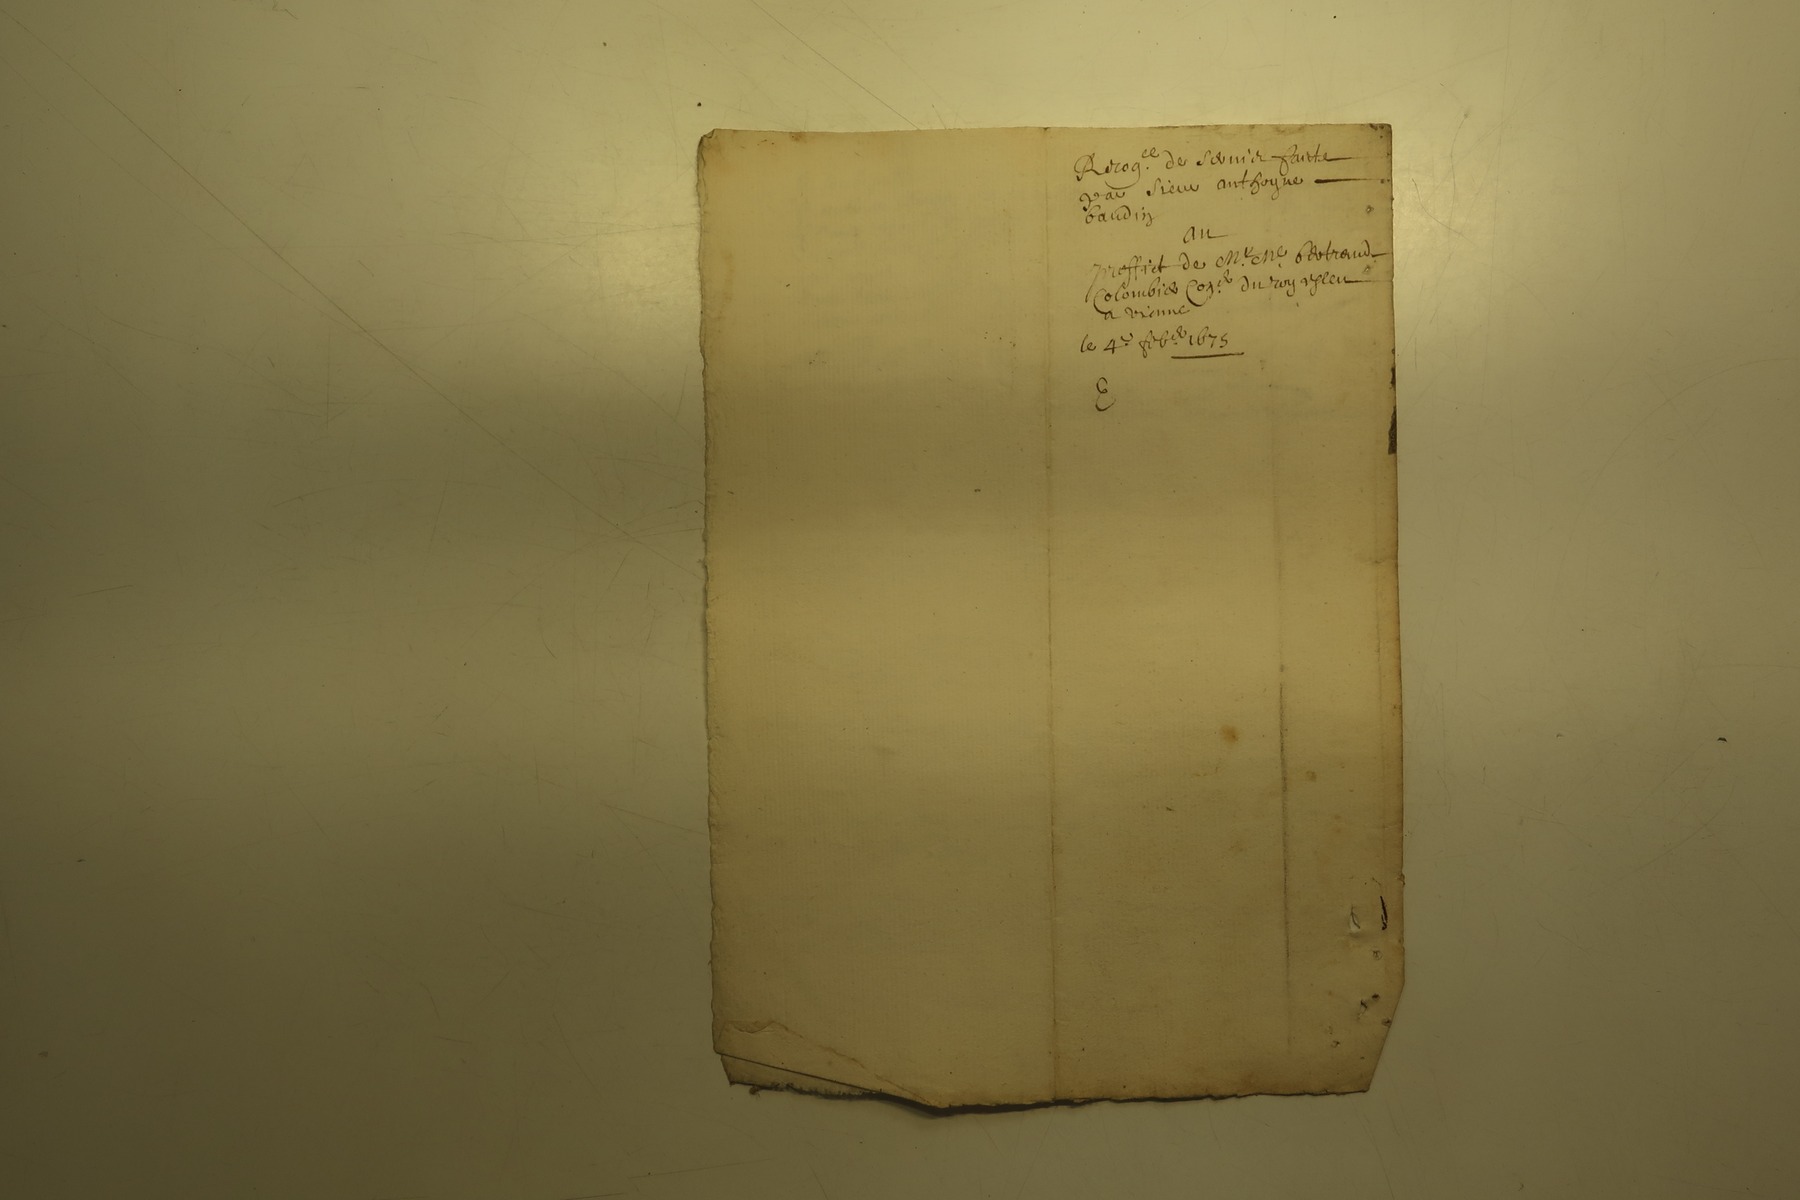 Recog.ce de servis faicte
par Sieur anthoyne
baudin
au
proffict de Mr. Me bertrand
Colombier Con.er du roy esleu
a vienne
le 4e febv.er 1675
E